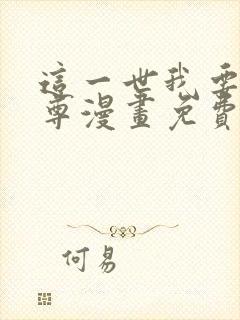 這一世我要
尊漫畫免費
何易